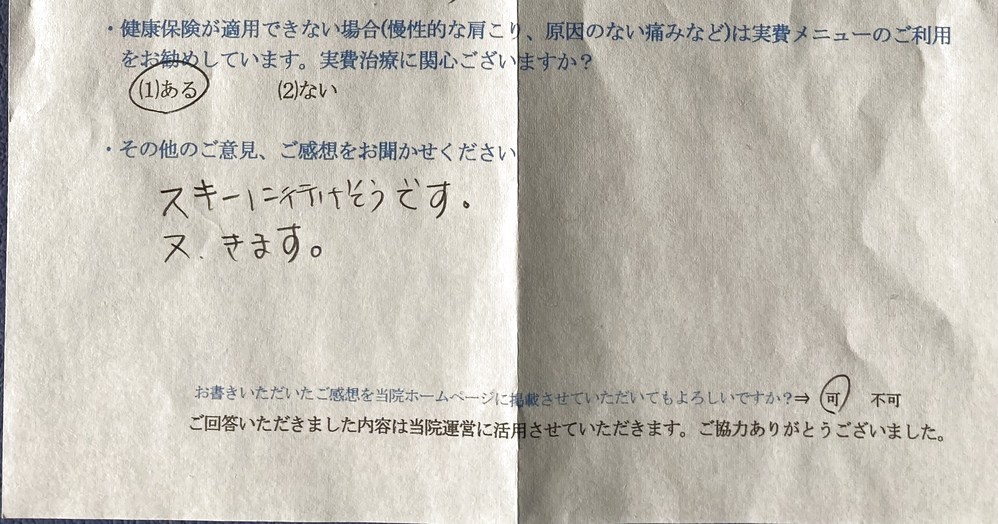 ・健康保険が適用できない場合(慢性的な肩こり、原因のない痛みなど)は実費メニューのご利用
をお勧めしています。実費治療に関心ございますか？
(1)ある　(2)ない
・その他のご意見、ご感想をお聞かせください
スキーに行けそうです。
又、きます。
お書きいただいたご感想を当院ホームページに掲載させていただいてもよろしいですか？⇒ 可　不可
ご回答いただきました内容は当院運営に活用させていただきます。ご協力ありがとうございました。